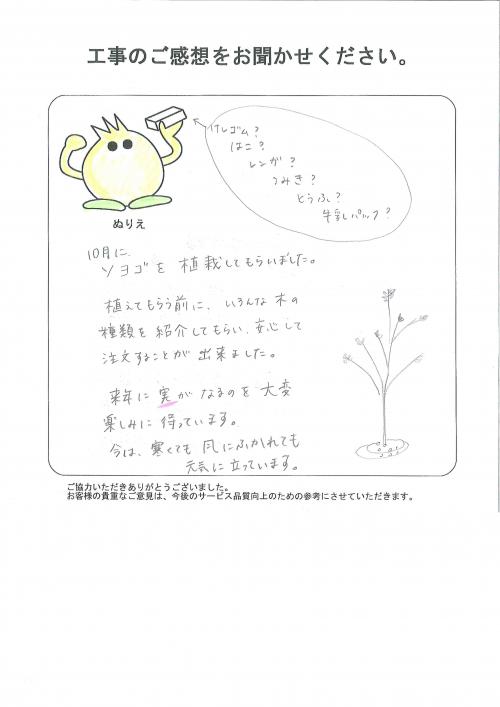 工事のご感想をお聞かせください。
けしゴム?
はこ?
レンガ?
つみき?
とうふ?
牛乳パック?
ぬりえ
10月に、
ソヨゴを植栽してもらいました。
植えてもらう前に、いろんな木の
種類を紹介してもらい、安心して
注文することが出来ました。
来年に実がなるのを大変
楽しみに待っています。
今は、寒くても風にふかれても
元気に立っています。
ご協力いただきありがとうございました。
お客様の貴重なご意見は、今後のサービス品質向上のための参考にさせていただきます。